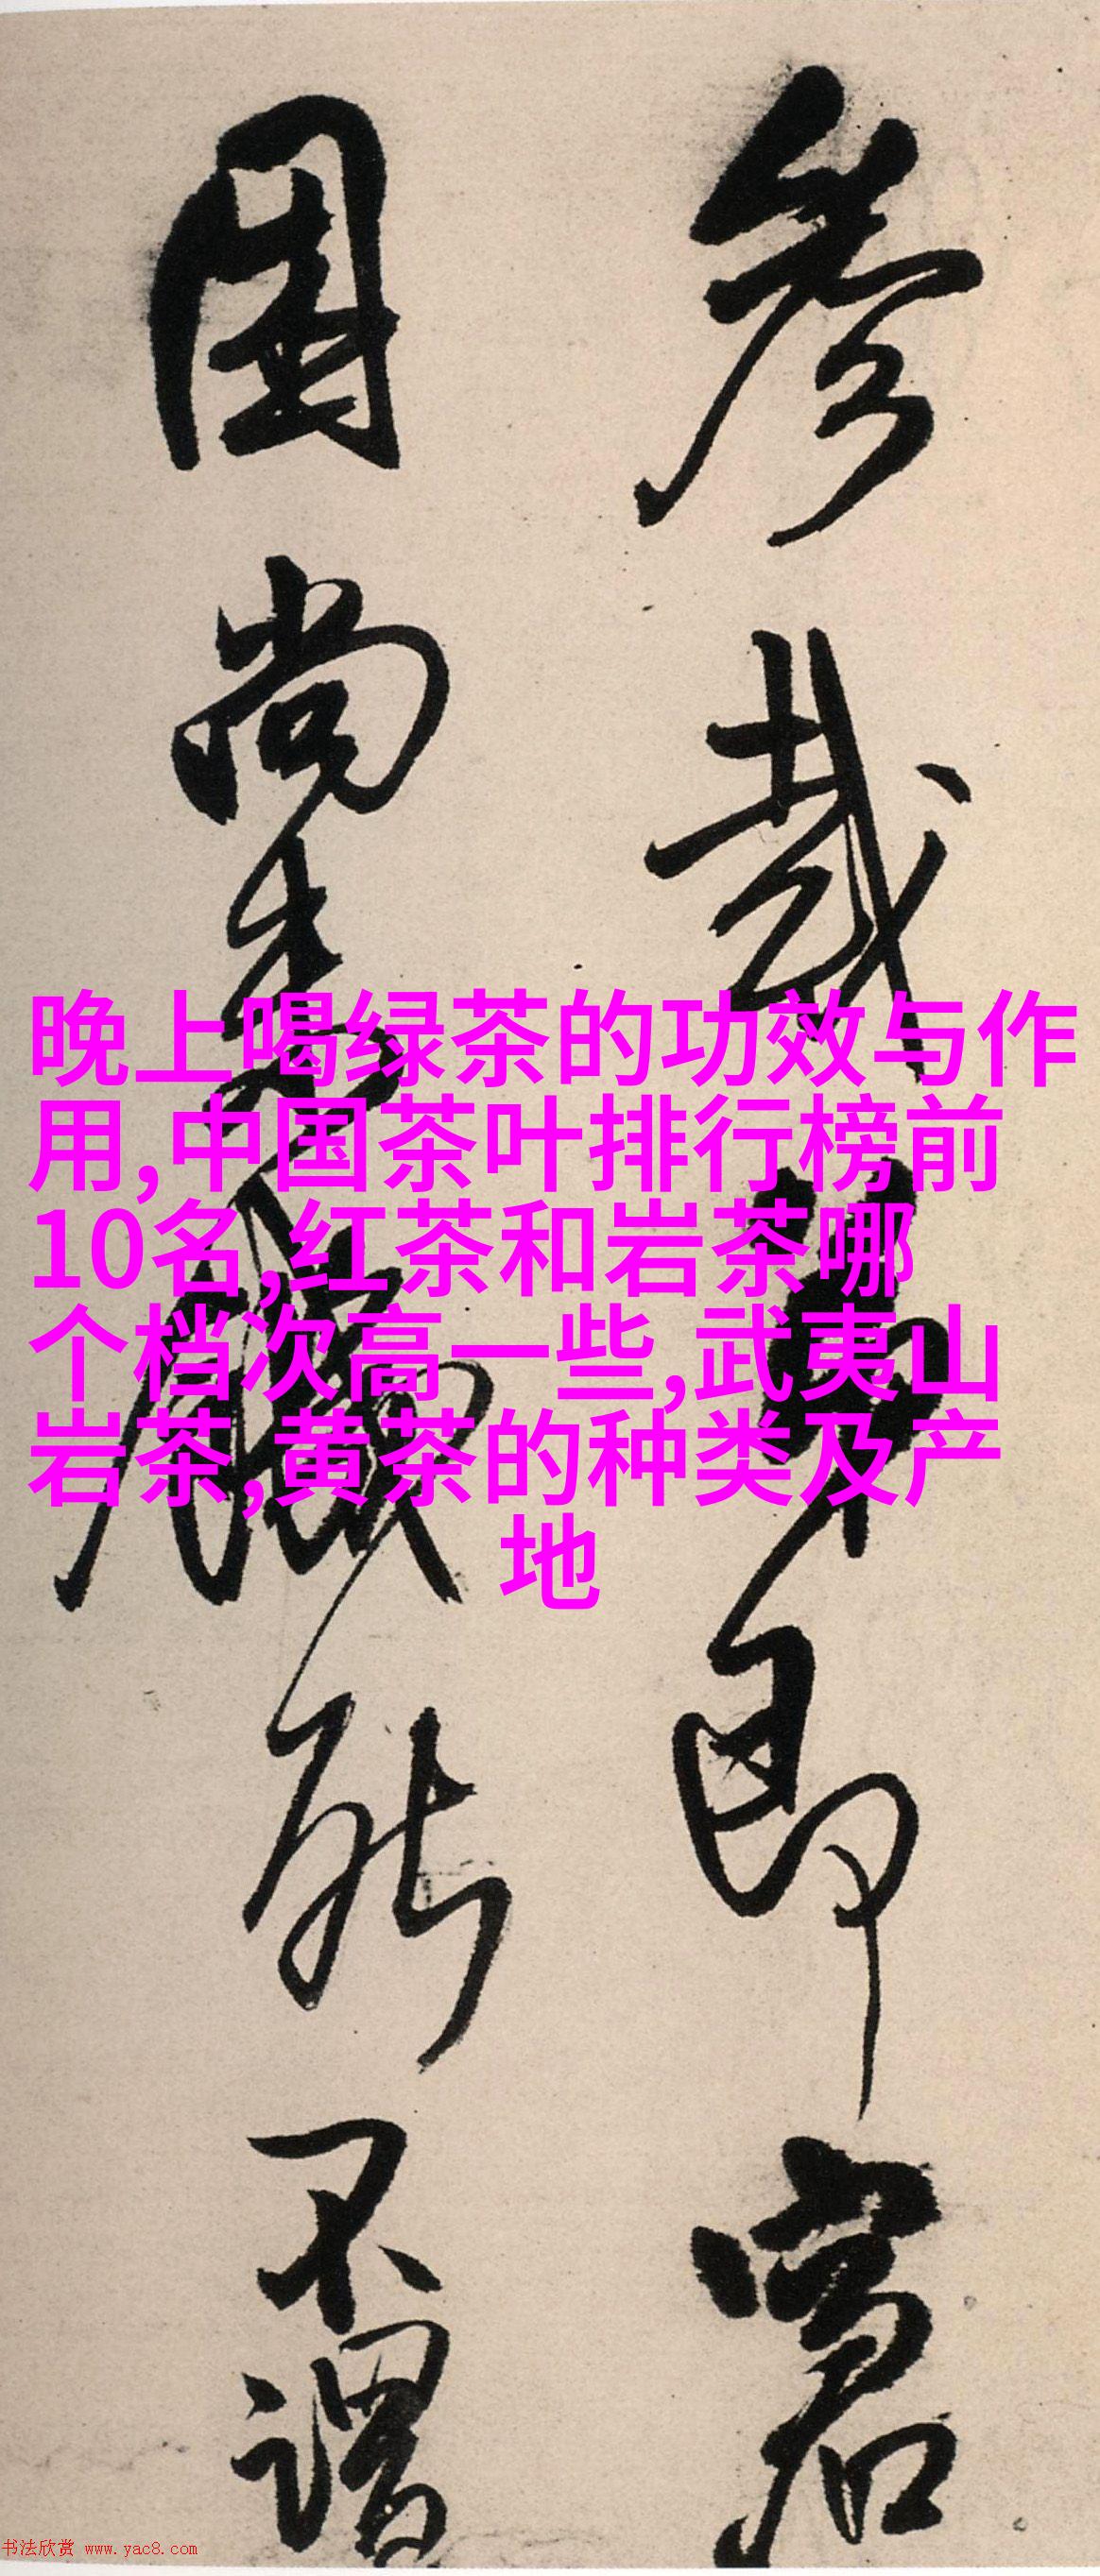 参哉其即窘
困尚未臓能不谓
晚上喝绿茶的功效与作
用,中国茶叶排行榜前
10名,红茶和岩茶哪
个档次高一些,武夷山
岩茶,黄茶的种类及产
地
书法欣赏 www.yac8.com